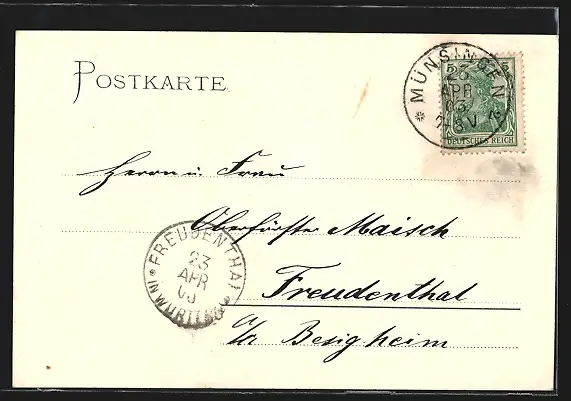 POSTKARTE
MÜNSINGEN
23
APR
03
7-8 V.
DEUTSCHES REICH
Herrn u. Frau
Oberförster Maisch
Freudenthal
a/a Besigheim
FREUDENTHAL
23
APR
03
IN WÜRTTEMBG